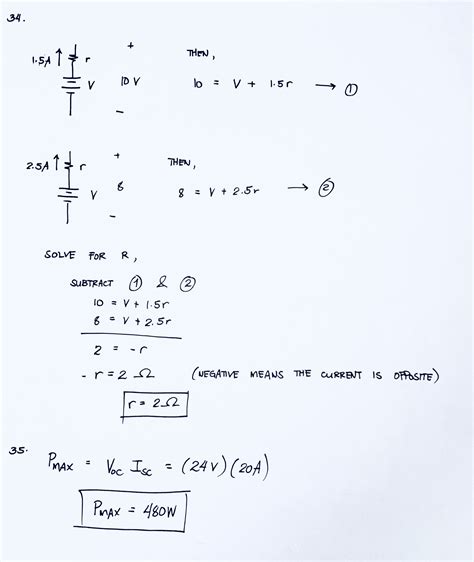 34.
1.5A ↑ r + THEN,
V 10 V 10 = V + 1.5r → ①
−
2.5A ↑ r + THEN,
V 8 8 = V + 2.5r → ②
−
SOLVE FOR R,
SUBTRACT ① & ②
10 = V + 1.5r
8 = V + 2.5r
2 = -r
- r = 2 Ω (NEGATIVE MEANS THE CURRENT IS OPPOSITE)
r = 2Ω
35.
PMAX = Voc Isc = (24V)(20A)
PMAX = 480W